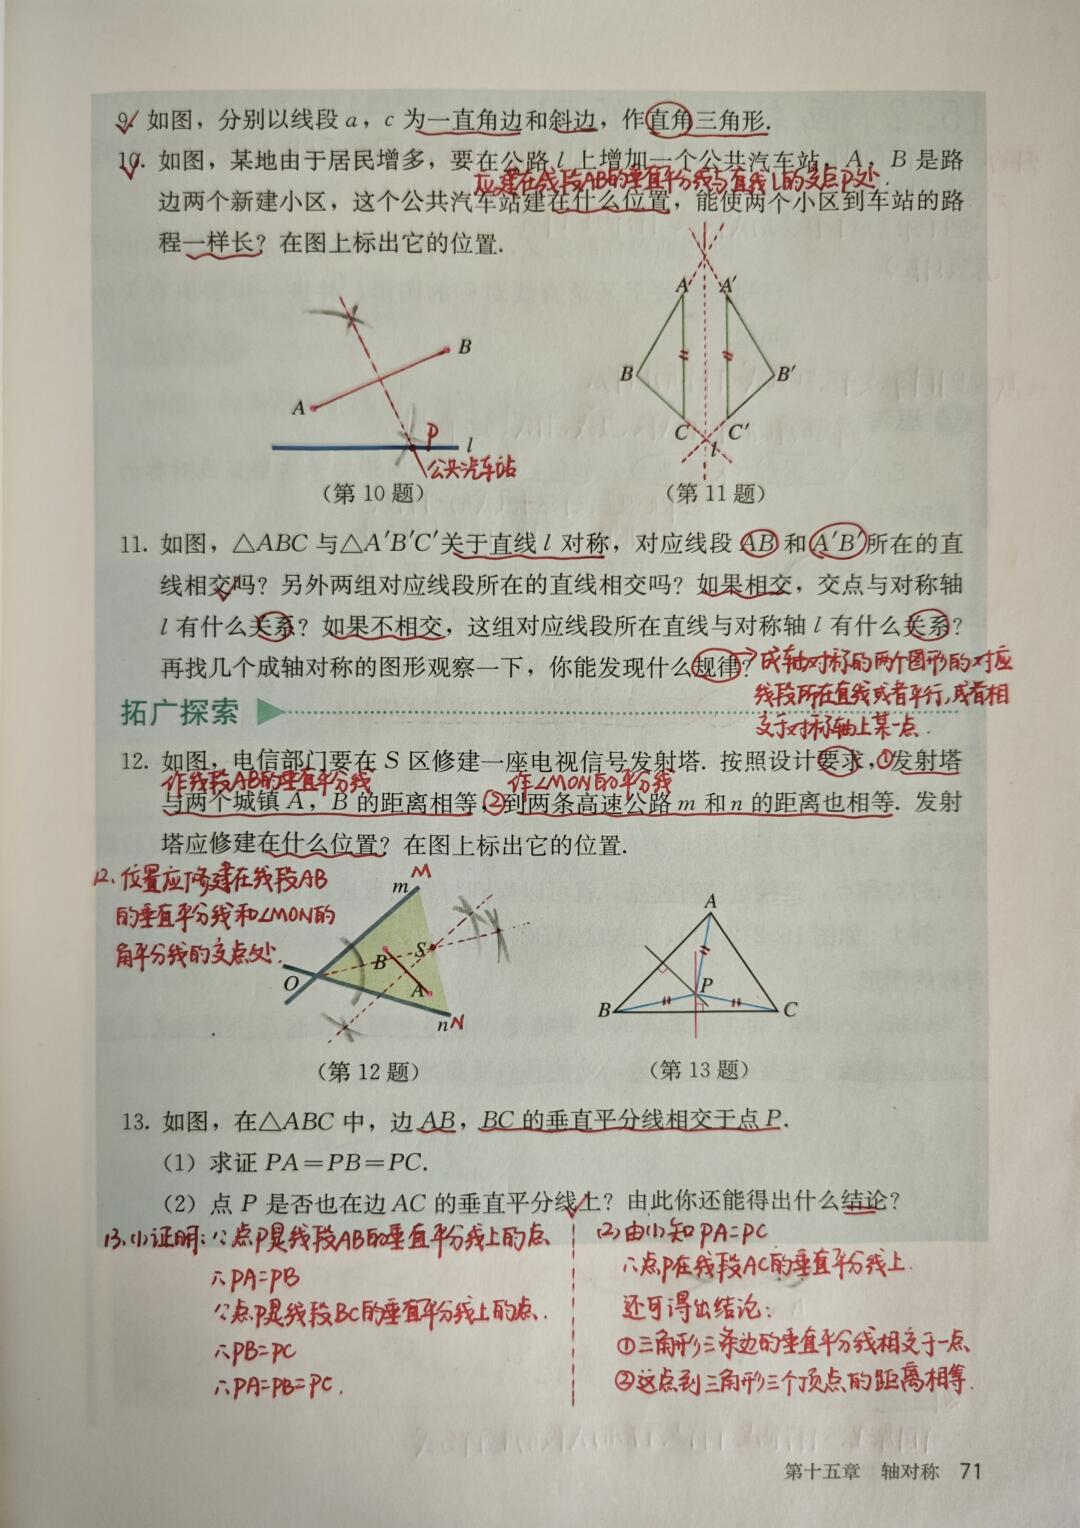 9. 如图，分别以线段 a，c 为一直角边和斜边，作直角三角形.
10. 如图，某地由于居民增多，要在公路 l 上增加一个公共汽车站，A，B 是路
应建在线段AB的垂直平分线与直线l的交点P处.
边两个新建小区，这个公共汽车站建在什么位置，能使两个小区到车站的路
程一样长？在图上标出它的位置.
A
B
P
l
公共汽车站
（第 10 题）
A
A′
B
B′
C
C′
l
（第 11 题）
11. 如图，△ABC 与△A′B′C′关于直线 l 对称，对应线段 AB 和 A′B′所在的直
线相交吗？另外两组对应线段所在的直线相交吗？如果相交，交点与对称轴
l 有什么关系？如果不相交，这组对应线段所在直线与对称轴 l 有什么关系？
再找几个成轴对称的图形观察一下，你能发现什么规律？
→成轴对称的两个图形的对应
线段所在直线或者平行，或者相
交于对称轴上某一点.
拓广探索
12. 如图，电信部门要在 S 区修建一座电视信号发射塔. 按照设计要求，①发射塔
作线段AB的垂直平分线
作∠MON的平分线
与两个城镇 A，B 的距离相等，②到两条高速公路 m 和 n 的距离也相等. 发射
塔应修建在什么位置？在图上标出它的位置.
12. 位置应修建在线段AB
的垂直平分线和∠MON的
角平分线的交点处.
M
m
B
S
O
A
n
N
（第 12 题）
A
P
B
C
（第 13 题）
13. 如图，在△ABC 中，边 AB，BC 的垂直平分线相交于点 P.
（1）求证 PA＝PB＝PC.
（2）点 P 是否也在边 AC 的垂直平分线上？由此你还能得出什么结论？
13. (1)证明：∵点P是线段AB的垂直平分线上的点
∴PA=PB
∵点P是线段BC的垂直平分线上的点.
∴PB=PC
∴PA=PB=PC.
(2)由(1)知PA=PC
∴点P在线段AC的垂直平分线上.
还可得出结论：
①三角形三条边的垂直平分线相交于一点
②这点到三角形三个顶点的距离相等.
第十五章 轴对称 71